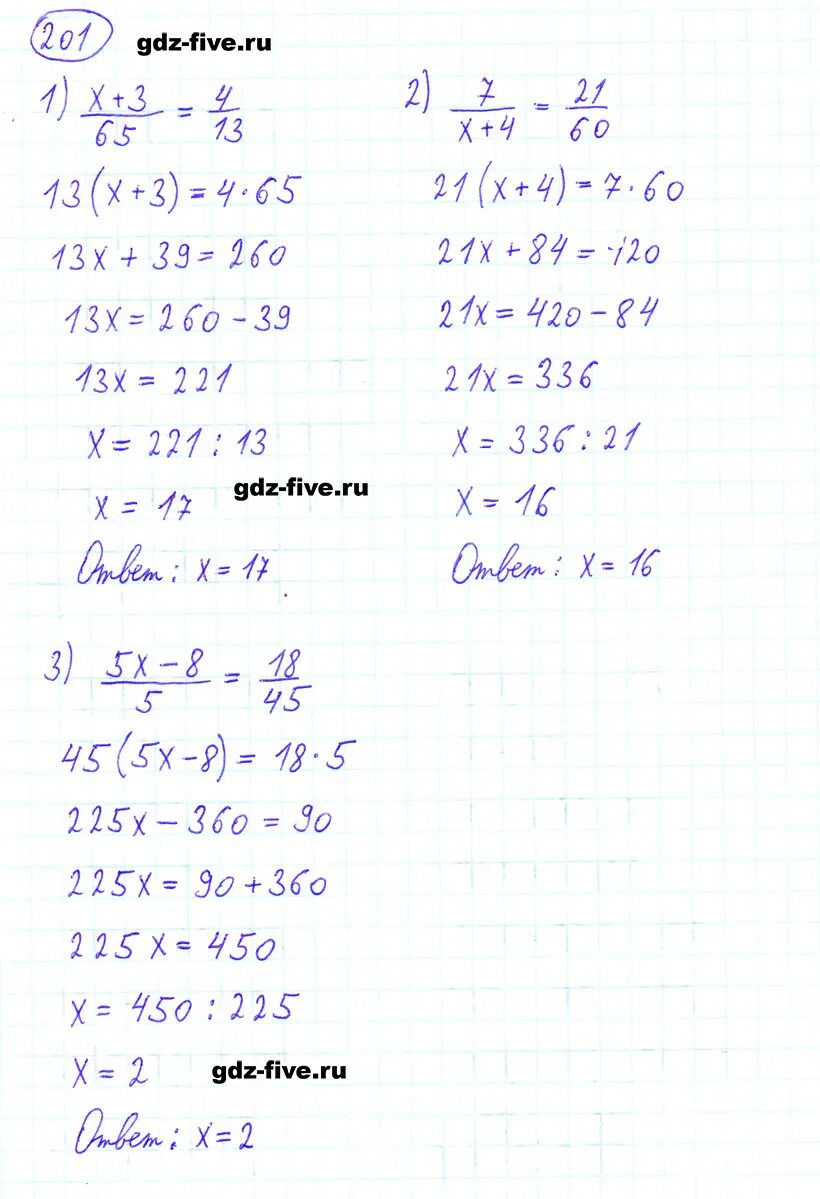 201 gdz-five.ru
1) (x+3)/65 = 4/13
13(x+3) = 4·65
13x + 39 = 260
13x = 260 − 39
13x = 221
x = 221 : 13
x = 17
gdz-five.ru
Ответ: x = 17
2) 7/(x+4) = 21/60
21(x+4) = 7·60
21x + 84 = 420
21x = 420 − 84
21x = 336
x = 336 : 21
x = 16
Ответ: x = 16
3) (5x − 8)/5 = 18/45
45(5x−8) = 18·5
225x − 360 = 90
225x = 90 + 360
225x = 450
x = 450 : 225
x = 2 gdz-five.ru
Ответ: x = 2